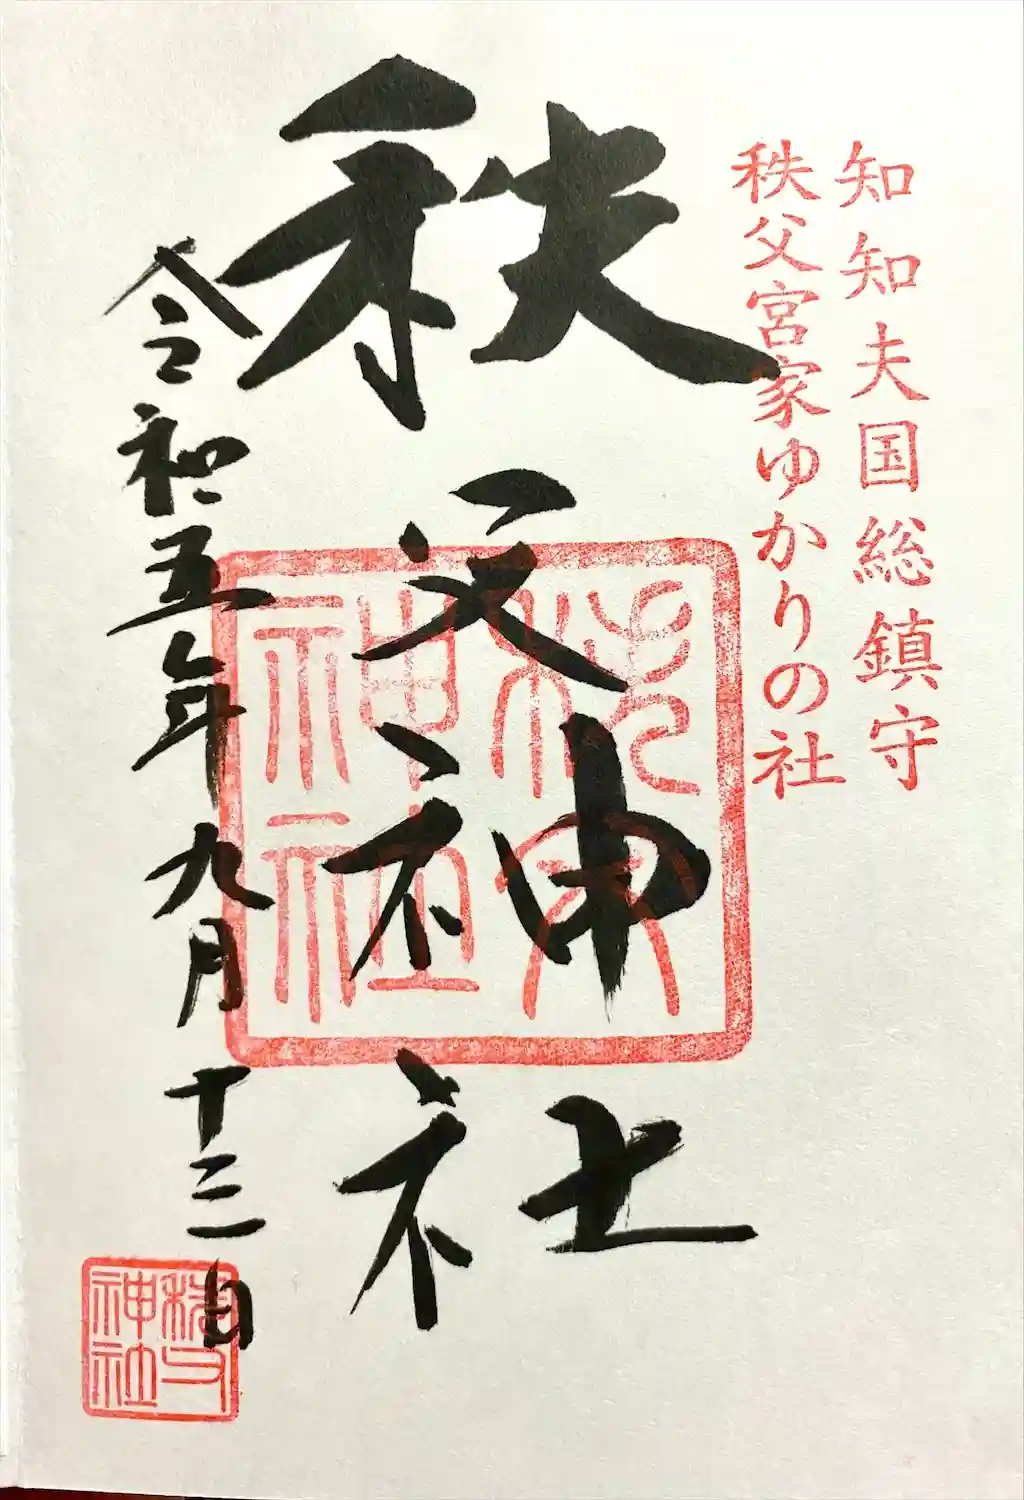 知知夫国総鎮守
秩父宮家ゆかりの社
秩父神社
秩父神社
令和五年九月十二日
秩父神社